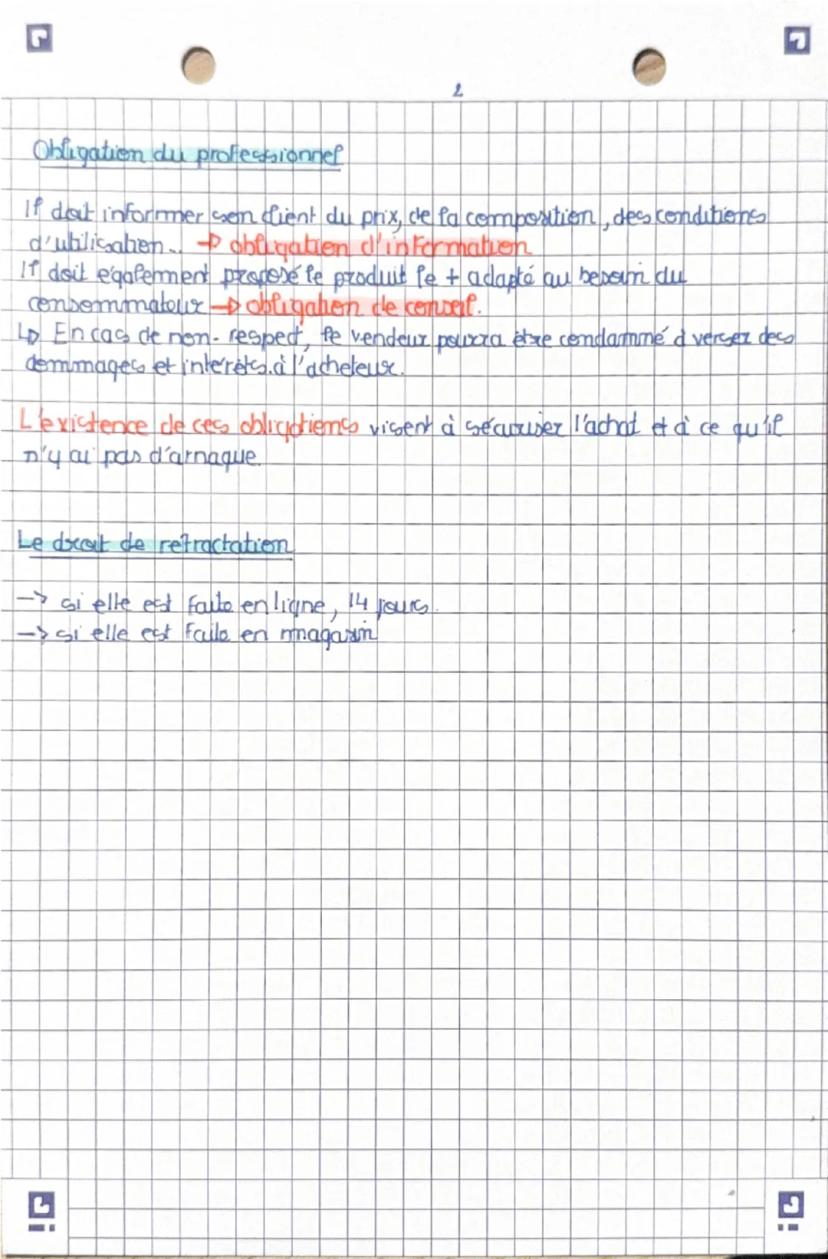 2
Obligation du professionnel
Il doit informer son client du prix, de la composition, des conditions
d'utilisation... → obligation d'information
Il doit également proposé le produit le + adapté au besoin du
consommateur → obligation de conseil.
↳ En cas de non-respect, le vendeur pourra être condammé à verser des
dommages et interêts à l'acheteur.
L'existence de ces obligations visent à sécuriser l'achat et à ce qu'il
n'y ai pas d'arnaque.
Le droit de retractation
-> si elle est faite en ligne, 14 jours.
-> si elle est faite en magasin